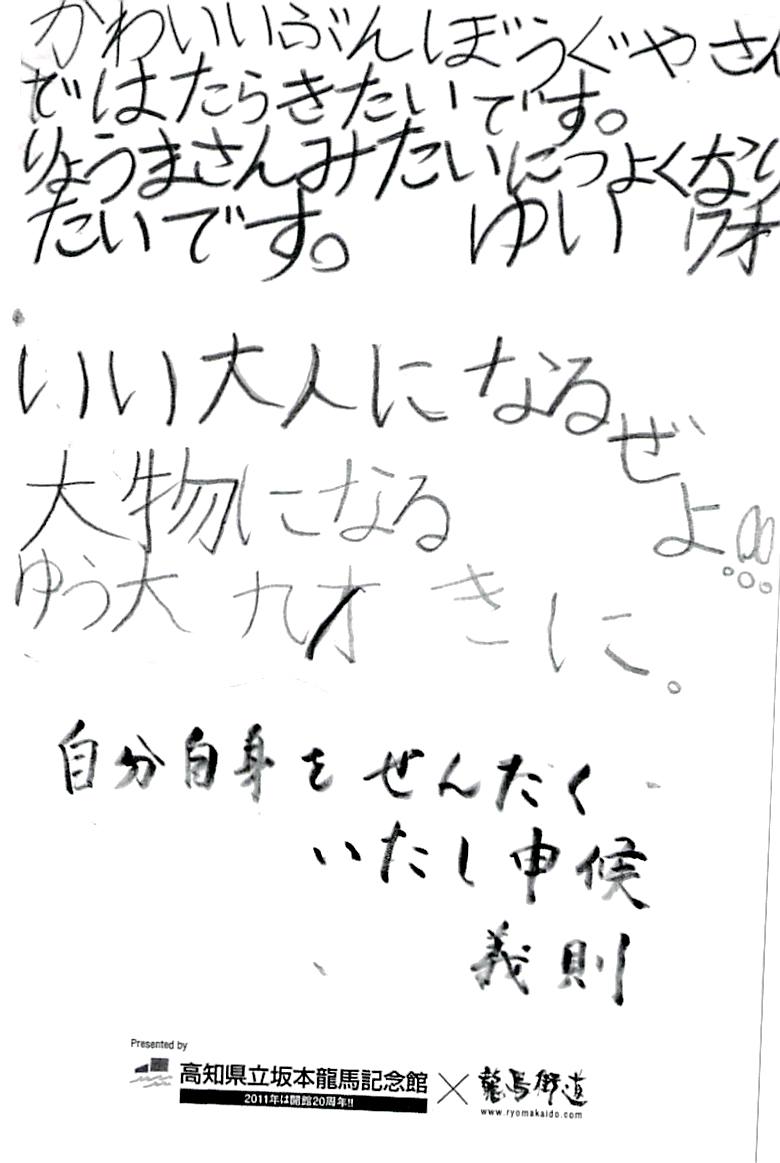 かわいいぶんぼうぐやさん
ではたらきたいです。
りょうまさんみたいにつよくなり
たいです。 ゆい 7才
いい大人になるぜよ!!!
大物になる
ゆう大 九才 きに。
自分自身をせんたく
いたし申候
義則
Presented by
高知県立坂本龍馬記念館×龍馬街道
2011年は開館20周年!!
www.ryomakaido.com